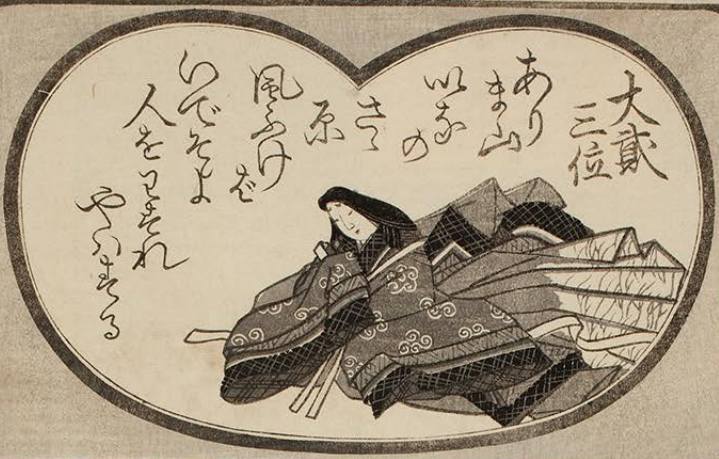 大貳
三位
あり
ま山
いな
の
さゝ
原
風ふけ
ば
いでそよ
人をわすれ
やハする